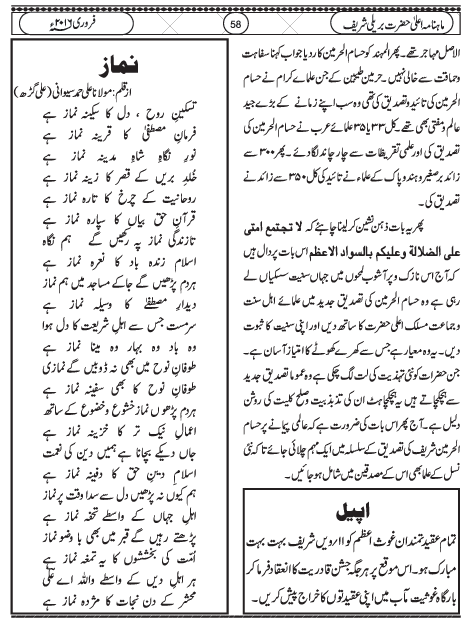 ماہنامہ اعلیٰ حضرت بریلی شریف
58
فروری ۲۰۱۶ء
الاصل مہاجر تھے۔ پھر المہند کو حسام الحرمین کا رد یا جواب کہنا سفاہت
وحماقت سے خالی نہیں۔ حرمین طیبین کے جن علماء کرام نے حسام
الحرمین کی تائید و تصدیق کی تھی وہ سب اپنے زمانے کے بڑے جید
عالم ومفتی بھی تھے۔ کل ۳۳ یا ۳۵ علمائے عرب نے حسام الحرمین کی
تصدیق کی اور علمی تقریظات سے چار چاند لگا دئے۔ پھر ۳۰۰ سے
زائد برصغیر و ہند و پاک کے علماء نے تائید کی کل ۳۵۰ سے زائد نے
تصدیق کی۔
پھر یہ بات ذہن نشین کر لینا چاہئے کہ لا تجتمع امتی
علی الضلالة وعلیکم بالسواد الاعظم اس بات پر دال ہیں
کہ آج اس نازک و پر آشوب لمحوں میں جہاں سنیت سسکیاں لے
رہی ہے وہ حسام الحرمین کی تصدیق جدید میں علمائے اہل سنت
و جماعت مسلک اعلیٰ حضرت کا ساتھ دیں اور اپنی سنیت کا ثبوت
دیں۔ یہ وہ معیار ہے جس سے کھرے کھوٹے کا امتیاز آسان ہے۔
جن حضرات کو نئی تہذیب کی لت لگ چکی ہے وہ عموما تصدیق جدید
سے ہچکچاتے ہیں یہ ہچکچاہٹ ان کی تذبذبیت صلح کلیت کی روشن
دلیل ہے۔ آج پھر اس بات کی ضرورت ہے کہ عالمی پیمانے پر حسام
الحرمین شریف کی تصدیق کے سلسلہ میں ایک مہم چلائی جائے تاکہ نئی
نسل کے علما بھی اس کے مصدقین میں شامل ہو جائیں۔
اپیل
تمام عقیدتمندان غوث اعظم کو ۱۱ارویں شریف بہت بہت
مبارک ہو۔ اس موقع پر ہر جگہ جشن قادریت کا انعقاد فرما کر
بارگاہ غوثیت مآب میں اپنی عقیدتوں کا خراج پیش کریں۔
نماز
از قلم: مولانا علی احمد سیوانی (علی گڑھ)
تسکینِ روح، دل کا سکینہ نماز ہے
فرمانِ مصطفیٰ کا قرینہ نماز ہے
نورِ نگاہِ شاہِ مدینہ نماز ہے
خلد بریں کے قصر کا زینہ نماز ہے
روحانیت کے چرخ کا تارہ نماز ہے
قرآنِ حق بیاں کا سپارہ نماز ہے
تازندگی نماز پہ رکھیں گے ہم نگاہ
اسلام زندہ باد کا نعرہ نماز ہے
ہردم پڑھیں گے جاکے مساجد میں ہم نماز
دیدارِ مصطفیٰ کا وسیلہ نماز ہے
سرمست جس سے اہلِ شریعت کا دل ہوا
وہ باد وہ بہار وہ مینا نماز ہے
طوفانِ نوح میں بھی نہ ڈوبیں گے نمازی
طوفانِ نوح کا بھی سفینہ نماز ہے
ہردم پڑھو نماز خشوع و خضوع کے ساتھ
اعمالِ نیک تر کا خزینہ نماز ہے
جاں دیکے بچانا ہے ہمیں دین کی نعمت
اسلام دینِ حق کا دفینہ نماز ہے
ہم کیوں نہ پڑھیں دل سے سدا وقت پر نماز
اہلِ جہاں کے واسطے تحفہ نماز ہے
پڑھتے رہیں گے قبر میں بھی با وضو نماز
امّت کی بخششوں کا یہ تمغہ نماز ہے
ہر اہلِ دیں کے واسطے واللہ اے علی
محشر کے دن نجات کا مژدہ نماز ہے